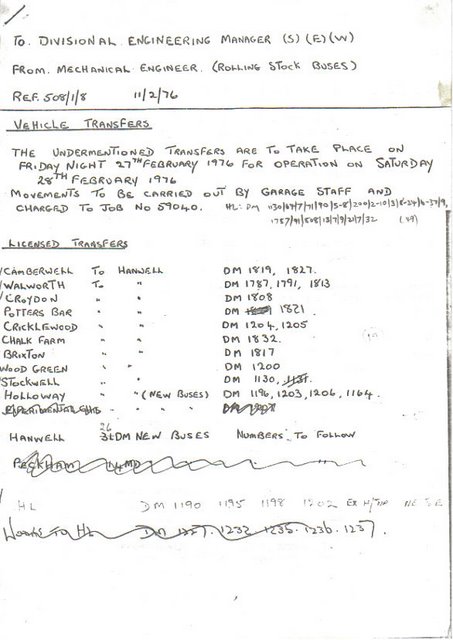 TO. DIVISIONAL ENGINEERING MANAGER (S) (E) (W)
FROM. MECHANICAL ENGINEER. (ROLLING STOCK BUSES)
REF. 508/1/8 11/2/76
VEHICLE TRANSFERS
THE UNDERMENTIONED TRANSFERS ARE TO TAKE PLACE ON
FRIDAY NIGHT 27TH FEBRUARY 1976 FOR OPERATION ON SATURDAY
28TH FEBRUARY 1976
MOVEMENTS TO BE CARRIED OUT BY GARAGE STAFF AND
CHARGED TO JOB NO 59040. HL: DM
LICENSED TRANSFERS
CAMBERWELL TO HANWELL DM 1819, 1827.
WALWORTH TO " DM 1787, 1791, 1813
CROYDON " " DM 1808
POTTERS BAR " " DM 1821
CRICKLEWOOD " " DM 1204, 1205
CHALK FARM " " DM 1832.
BRIXTON " " DM 1817
WOOD GREEN " " DM 1200
STOCKWELL " " DM 1130, 1131.
HOLLOWAY " " (NEW BUSES) DM 1196, 1203, 1206, 1164.
EXPERIMENTAL " " " DM
26
HANWELL DM NEW BUSES NUMBERS TO FOLLOW
PECKHAM 14 MD
HL DM 1190 1195 1198 1202 EX
WORKS TO HL DM 1227. 1232 1235. 1236. 1237.